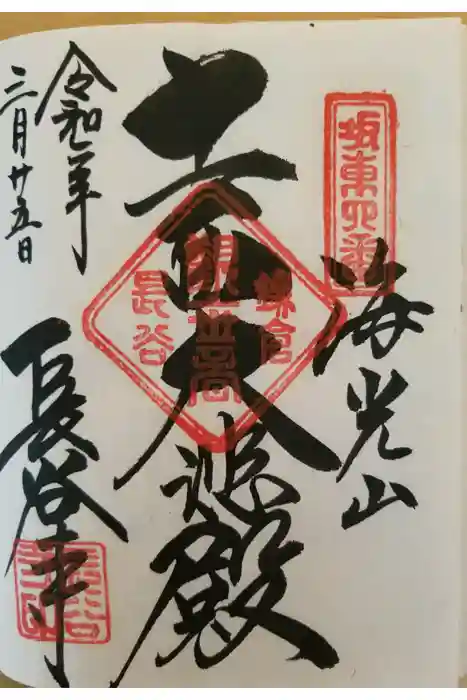 坂東四番
海光山
十一面大悲殿
鎌倉
観世音
長谷
令和年
三月廿五日
長谷寺